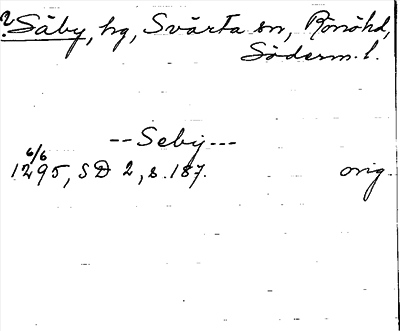 ? Säby, hg, Svärta sn, Rönöhd,
Söderm. l.
-- Seby ---
6/6
1295, SD 2, s. 187. orig.